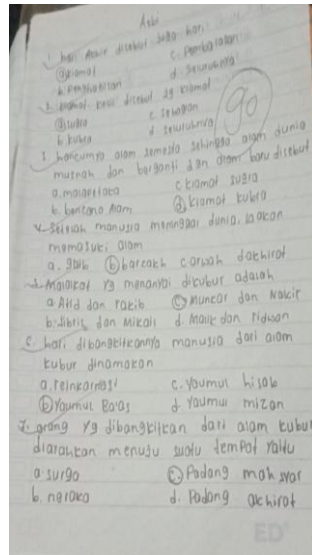 Aski
1. hari Akhir disebut juga hari
a. kiamat c. Pembalasan
b. Penghabisan d. seluruhnya
2. kiamat kecil disebut jg kiamat
a. sugra c. sebagian
b. kubra d. seluruhnya
90
3. hancurnya alam semesta sehingga alam dunia
musnah dan berganti dgn alam baru disebut
a. malapetaka c. kiamat sugra
b. bencana Alam d. kiamat kubra
4. setelah manusia meninggal dunia, ia akan
memasuki alam
a. gaib b. barzakh c. arwah d. akhirat
5. Malaikat yg menanyai dikubur adalah
a. Atid dan rakib c. Muncar dan Nakir
b. jibril dan Mikail d. Malik dan ridwan
6. hari dibangkitkannya manusia dari alam
kubur dinamakan
a. reinkarnasi c. Yaumul hisab
b. Yaumul Ba'as d. Yaumul mizan
7. orang yg dibangkitkan dari alam kubur
diarahkan menuju suatu tempat yaitu
a. surga c. Padang mahsyar
b. neraka d. Padang akhirat
ED